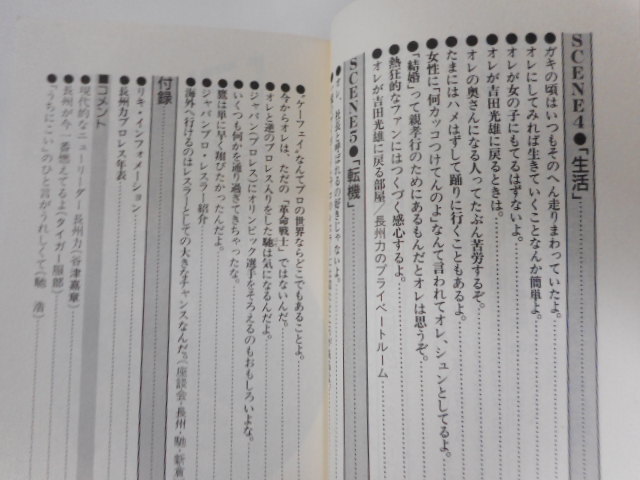 SCENE4●「生活」
●ガキの頃はいつもそのへん走りまわっていたよ。
●オレにしてみれば生きていくことなんか簡単よ。
●オレが女の子にもてるはずないよ。
●オレが吉田光雄に戻るときは。
●オレの奥さんになる人ってたぶん苦労するぞ。
●たまにはハメはずして踊りに行くこともあるよ。
●女性に「何カッコつけてんのよ」なんて言われてオレ、シュンとしてるよ。
●「結婚」って親孝行のためにあるもんだとオレは思うぞ。
●熱狂的なファンにはつくづく感心するよ。
●オレが吉田光雄に戻る部屋/長州力のプライベートルーム
SCENE5●「転機」
●オレ、社長と呼ばれるの好きじゃないよ。
●“ケーフェイ”なんてプロの世界ならどこでもあることよ。
●今からオレは、ただの「革命戦士」ではないんだ。
●オレと逆のプロレス入りをした馳は気になるんだよ。
●ジャパン〈プロレス〉にオリンピック選手をそろえるのもおもしろいよな。
●いくつも何かを通り過ぎてきちゃったな。
●鷹は単に早く翔びたかったんだよ。
●ジャパンプロ・レスラー紹介
●海外へ行けるのはレスラーとしての大きなチャンスなんだ。〈座談会・長州・馳・新倉
付録
●リキ・インフォメーション
●長州力プロレス年表
■コメント
●現代的なニューリーダー長州力〈谷津嘉章〉
●長州が今一番燃えてるよ〈タイガー服部〉
●“うちにこい”のひと言がうれしくて〈馳 浩〉